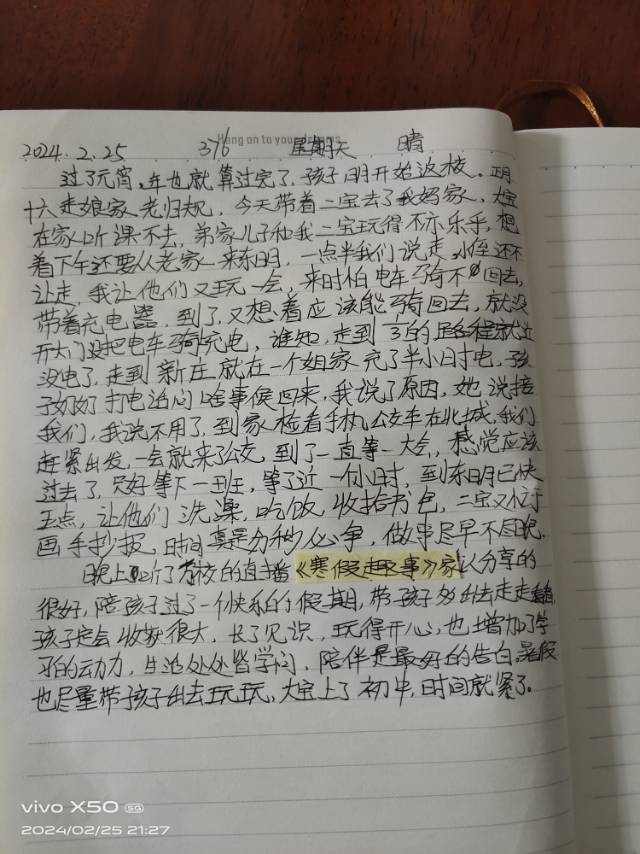 Hang on to your dreams
2024.2.25 376 星期天 晴
过了元宵,年也就算过完了,孩子明开始返校。正月
十六走娘家老归规,今天带着二宝去了我妈家,大宝
在家听课不去,弟家儿子和我二宝玩得不亦乐乎,想
着下午还要从老家来东明,一点半我们说走,小侄还不
让走,我让他们又玩一会,来时怕电车骑不回去,
带着充电器,到了,又想着应该能骑回去,就没
开大门没把电车骑充电,谁知,走到
没电了,走到新庄就在一个姐家充了半小时电,孩
子奶奶打电话问啥事候回来,我说了原因,她说接
我们,我说不用了,到家检看手机公交车在北城,我们
赶紧出发,一会就来了公交,到了一直等一大会,感觉应该
过去了,只好等下一班,等了近一个小时,到东明已快
五点,让他们洗澡,吃饭,收拾书包,二宝又忙于
画手抄报,时间真是分秒必争,做事尽早不尽晚。
晚上听了学校的直播《寒假趣事》家认分享的
很好,陪孩子过了一个快乐的假期,带孩子多出去走走
孩子定会收获很大,长了见识,玩得开心,也增加了学
习的动力,生活处处皆学问,陪伴是最好的告白。暑假
也尽量带孩子出去玩玩,大宝上了初中,时间就紧了。
vivo X50 5G
2024/02/25 21:27